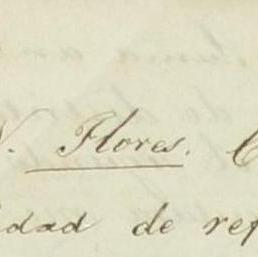 N. Flores. C
idad de ref